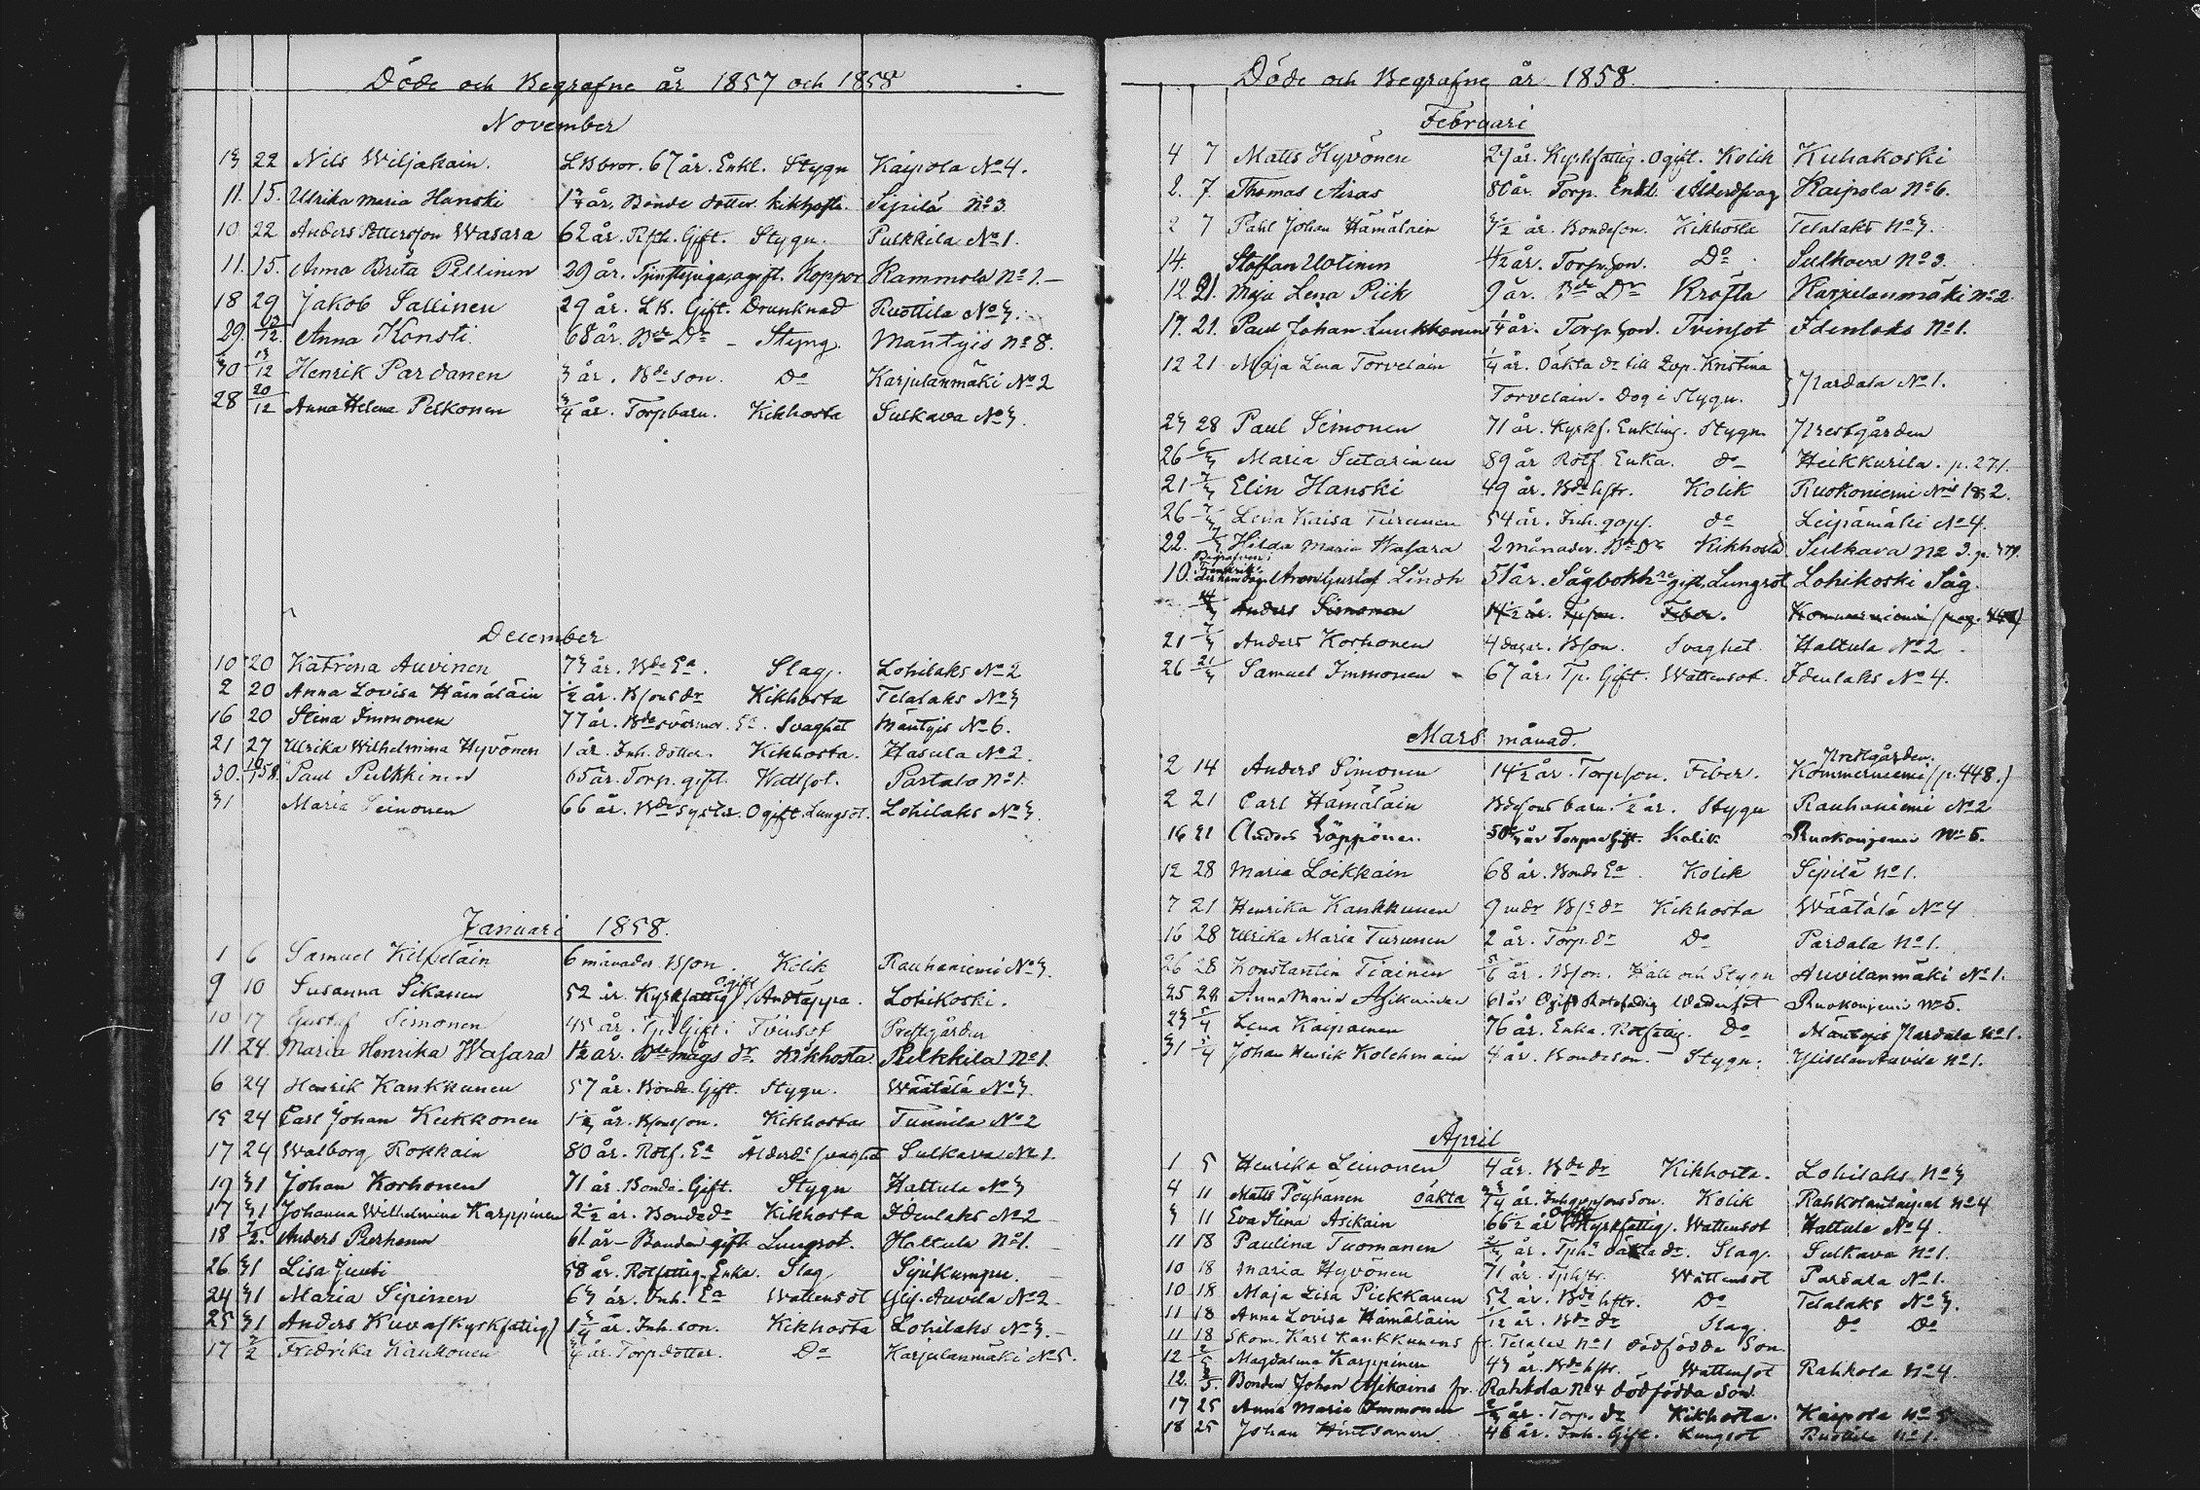 Döde och Begrafne år 1857 och 1858
November
13 22 Nils Wiljakain. LKbror. 67 år. Enkl. Stygn Kaipola No 4.
11. 15. Ulrika Maria Hanski år. Bonde dotter. Kikhosta. Sipilä No 3
10 22 Anders Pettersson Wasara 62 år. Gift. Stygn. Pulkkila No 1.
11. 15. Anna Brita Pellinen 29 år. ogift. Koppor Kammola No 1.
18 29 Jakob Sallinen 29 år. LK. Gift. Drunknad Ruottila No 3.
29. 13/12. Anna Konsti 68 år. Bde Dr – Styng. Mäntyis No 8.
30 13/12 Henrik Pardanen 3 år. Bde son. Do Karjulanmäki No 2
28 20/12 Anna Helena Pelkonen 3/4 år. Torpbarn. Kikhosta Sulkava No 3.
December
10 20 Katrina Auvinen 73 år. Bde Ea. Slag. Lohilaks No 2
2 20 Anna Lovisa Hämäläin 1/2 år. Bsons dr Kikhosta Telalaks No 3
16 20 Stina Immonen 77 år. Bde svärmor. Ea. Svaghet Mäntyis No 6.
21 27 Ulrika Wilhelmina Hyvönen 1 år. Inh. dotter. Kikhosta. Hasula No 2.
30. 10/1 58. Paul Pulkkinen 65 år. Torp. gift. Wattsot. Partalo No 1.
31 Maria Leinonen 66 år. Bde syster. Ogift. Lungsot. Lohilaks No 3.
Januari 1858.
1 6 Samuel Kilpeläin 6 månader. Bson. Kolik Rauhaniemi No 3.
9 10 Susanna Sikanen 52 år. Kyrkfattig Ogift Andtäppa. Lohikoski.
10 17 Gustaf Simonen 45 år. Tp. Gift. Tvinsot Prestgården
11 24 Maria Henrika Wasara 1 1/2 år. Bde mågs dr. Kikhosta. Pulkkila No 1.
6 24 Henrik Kankkunen 57 år. Bonde. Gift. Stygn. Wäätälä No 3.
15 24 Carl Johan Kukkonen 1 1/2 år. Bsonsson. Kikhosta Tunnila No 2
17 24 Walborg Kokkain 80 år. Rotf. Ea Ålderds svaghet Sulkava No 1.
19 31 Johan Korhonen 71 år. Bonde. Gift. Stygn Hattula No 3
17 31 Johanna Wilhelmina Karppinen 2 1/2 år. Bonde dr Kikhosta Idenlaks No 2
18 7/2. Anders 61 år – Bonde gift Lungsot. Hattula No 1.
26 31 Lisa Juuti 58 år. Rotfattig. Enka. Slag
24 31 Maria Sipinen 63 år. Inh. Ea Wattensot Auvila No 2
25 31 Anders Kuvas (kyrkfattig) 1 3/4 år. Inh. son. Kikhosta Lohilaks No 3.
17 7/2 Fredrika Kaukonen 3/4 år. Torpdotter. Do Karjulanmäki No 5.
Döde och Begrafne år 1858.
Februari
4 7 Matts Hyvönen 27 år. Kyrkfattig. Ogift. Kolik Kuhakoski
2. 7. Thomas Airas 80 år. Torp. Enkl. Ålderdsvag Kaipola No 6.
2 7 Pahl Johan Hämäläin år. Bondeson. Kikhosta Telalaks No 3.
14. Staffan Uotinen 4 1/2 år. Torp. son. Do Sulkava No 3.
12 21. Maja Lena Piik 9 år. Bde Dr Kräfta Karjulanmäki No 2
17. 21. Paul Johan Luukkonen 1/4 år. Torp. son. Tvinsot Idenlaks No 1.
12 21 Maja Lena Torvelain 1/4 år. Oäkta dr till Kristina
Torvelain. Dog i Stygn. Pardala No 1.
23 28 Paul Simonen 71 år. Kyrkf. Enkling. Stygn Prestgården
26 6/3 Maria Sutarinen 89 år Rotf. Enka. do Heikkurila. p. 271.
21 7/3 Elin Hanski 49 år. Bde hstr. Kolik Ruokoniemi Nris 1 & 2.
26 7/3 Lena Kaisa Turunen 54 år. Inh. do Leipämäki No 4.
22. 7/3 Hilda Maria Wasara 2 månader. Bde Dr Kikhosta Sulkava No 3.
10. Begrafven i Fredriks Aron Gustaf Lindh 51 år. Sågbokh. gift. Lungsot Lohikoski Såg.
14/3 Anders Simonen 14 1/2 år. Tpson. Feber. Kommerniemi (pag. 448)
21 7/3 Anders Korhonen 4 dagar. Bson. Svaghet. Hattula No 2
26 21/3 Samuel Immonen 67 år. Tp. Gift. Wattensot. Idenlaks No 4.
Mars månad.
2 14 Anders Simonen 14 1/2 år. Torpson. Feber. Prestgården. Kommerniemi (p. 448.)
2 21 Carl Hämäläin Bdesons barn. 1/2 år. Stygn Rauhaniemi No 2
16 21 Anders Löppönen. år Torpare Gift. Kolik Ruokoniemi No 5.
12 28 Maria Loikkain 68 år. Bonde Ea. Kolik Sipilä No 1.
7 21 Henrika Kankkunen 9 mdr Bde dr Kikhosta Wäätälä No 4
16 28 Ulrika Maria Turunen 2 år. Torp. dr Do Pardala No 1.
26 28 Konstantin Tiainen 5/6 år. Bson. Håll och Stygn Auvilanmäki No 1.
25 28 Anna Maria Asikainen 61 år Ogift Rotefattig Wattensot Ruokoniemi No 5.
23 5/4 Lena Kaipainen 76 år. Enka. Rotfattig. Do Mäntyis Pardala No 1.
31 5/4 Johan Henrik Kolehmain 4 år. Bondeson. – Stygn. Auvila No 1.
April
1 5 Henrika Leinonen 4 år. Bde dr Kikhosta. Lohilaks No 3
4 11 Matts Pöyhänen oäkta år. Son. Kolik Rahkola No 4
3 11 Eva Stina Asikain 66 1/2 år Ogift Kyrkfattig. Wattensot Hattula No 4.
11 18 Paulina Tuomanen år. oäkta dr. Slag. Sulkava No 1.
10 18 Maria Hyvönen 71 år. Tphstr. Wattensot Pardala No 1.
10 18 Maja Lisa Pickkanen 52 år. Bde hstr. Do Telalaks No 3.
11 18 Anna Lovisa Hämäläin 1/12 år. Bde dr Slag. Do Do
11 18 Skom. Karl Kankkunens fr. Telalax No 1 dödfödda Son.
12 2/5 Magdalena Karppinen 43 år. Bde hstr. Wattensot Rahkola No 4.
12. 2/5. Bonden Johan Asikains fr. Rahkola No 4 dödfödda Son.
17 25 Anna Maria Immonen år. Torp. dr Kikhosta. Kaipola No 5
18 25 Johan Hintsanen 46 år. Inh. Gift. Lungsot Ruottila No 1.